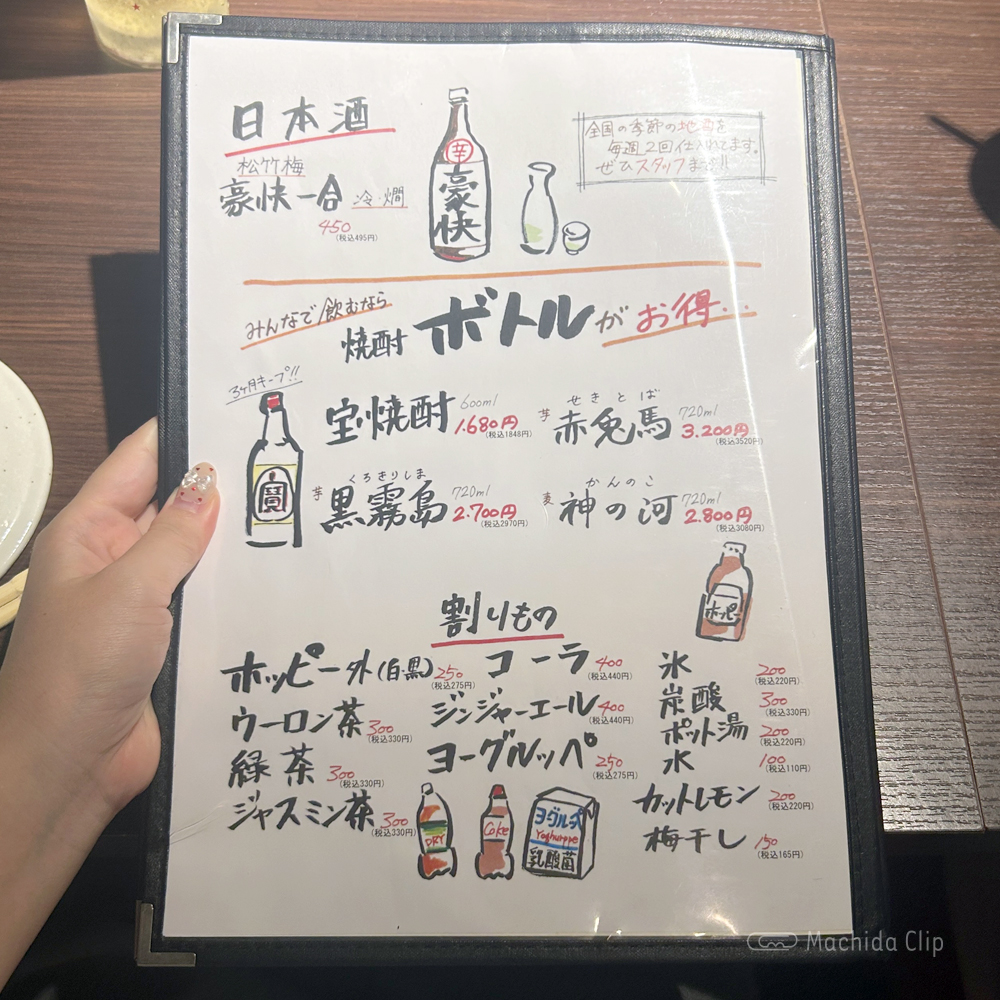 日本酒
松竹梅
豪快一合 冷・燗
450
(税込495円)
辛
豪快
全国の季節の地酒を
毎週2回仕入れてます。
ぜひスタッフまで!!
みんなで飲むなら
焼酎 ボトルがお得...
3ヶ月キープ!!
寶
宝焼酎 600ml 1.680円
(税込1848円)
せきとば
芋 赤兎馬 720ml 3.200円
(税込3520円)
くろきりしま
芋 黒霧島 720ml 2.700円
(税込2970円)
かんのこ
麦 神の河 720ml 2.800円
(税込3080円)
ホッピー
割りもの
ホッピー外(白・黒) 250
(税込275円)
ウーロン茶 300
(税込330円)
緑茶 300
(税込330円)
ジャスミン茶 300
(税込330円)
コーラ 400
(税込440円)
ジンジャーエール 400
(税込440円)
ヨーグルッペ 250
(税込275円)
氷 200
(税込220円)
炭酸 300
(税込330円)
ポット湯 200
(税込220円)
水 100
(税込110円)
カットレモン 200
(税込220円)
梅干し 150
(税込165円)
DRY
Coke
Yoghurppe
乳酸菌
Machida Clip